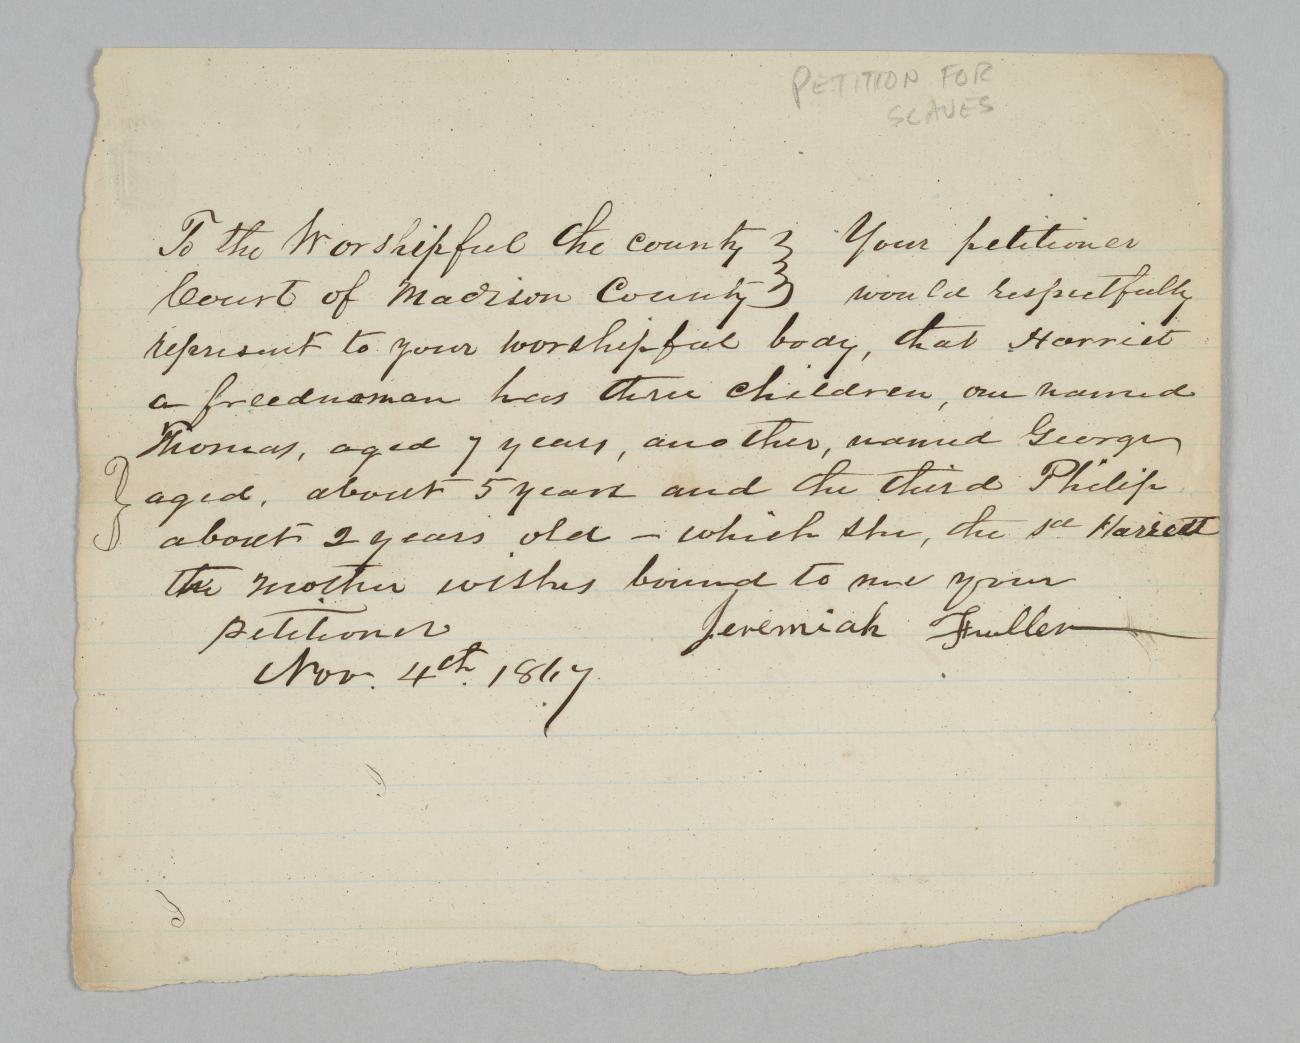 PETITION FOR
SLAVES
To the Worshipful the county } Your petitioner
Court of Madison County } would respectfully
represent to your worshipful body, that Harriet
a freedwoman has three children, one named
Thomas, aged 7 years, another, named George
aged, about 5 years and the third Philip
about 2 years old - which she, the sd Harriett
the mother wishes bound to me your
petitioner Jeremiah Fuller
Nov. 4th 1867